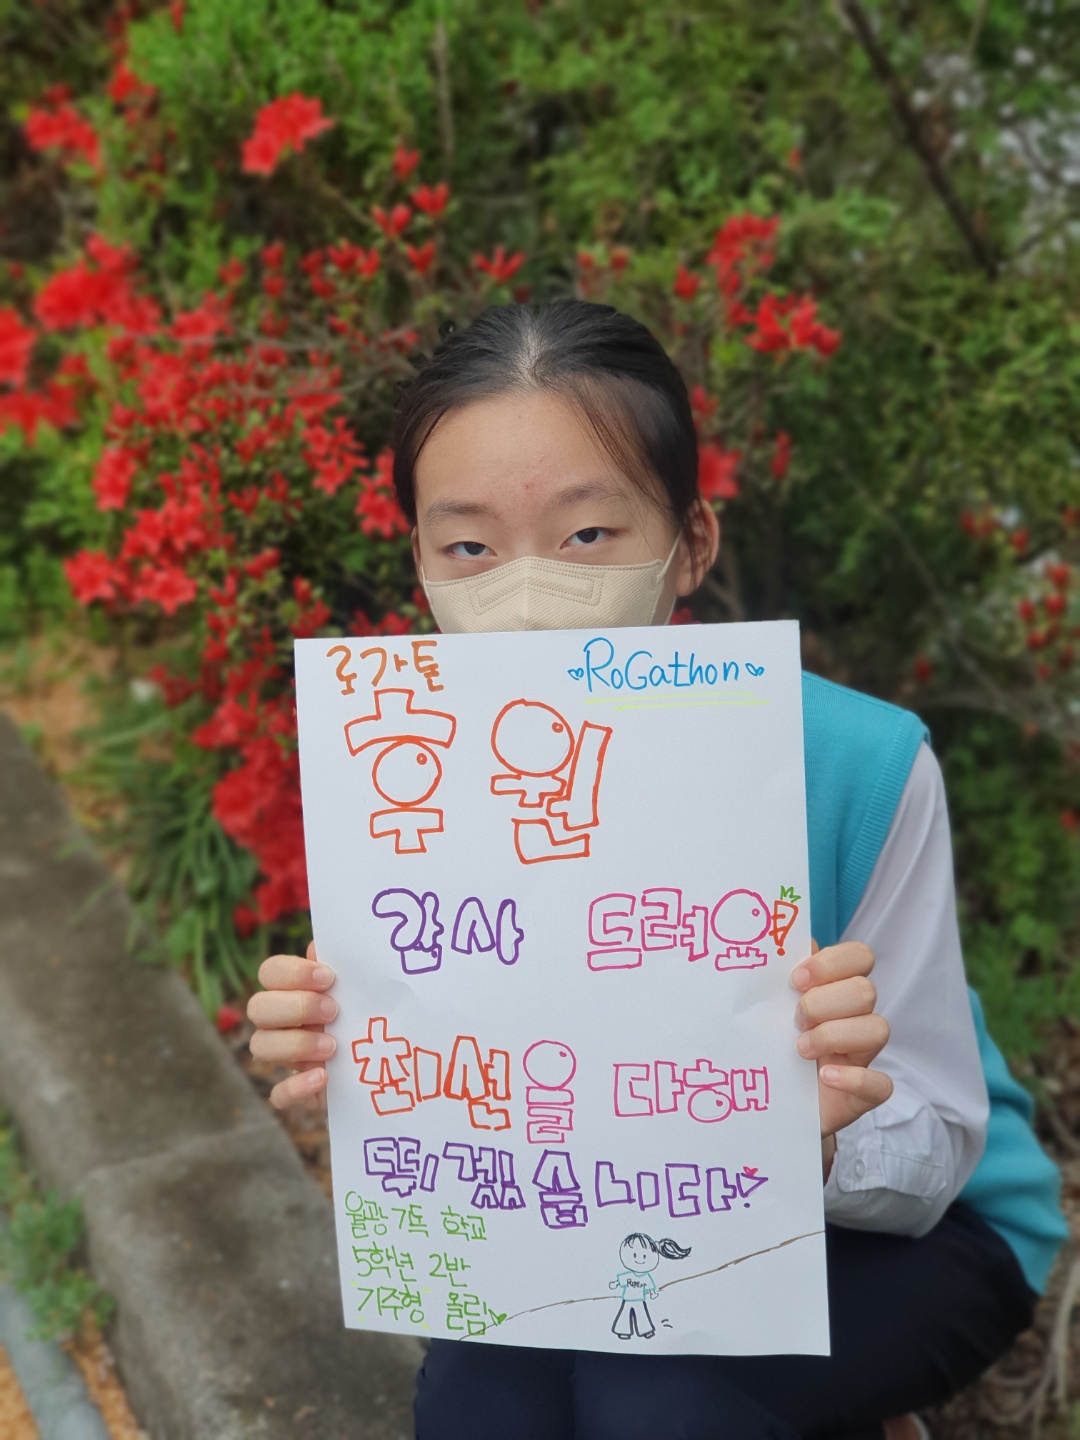 로가톤
RoGathon
후원
감사 드려요!
최선을 다해
뛰겠습니다!
월광기독학교
5학년 2반
기주형 올림